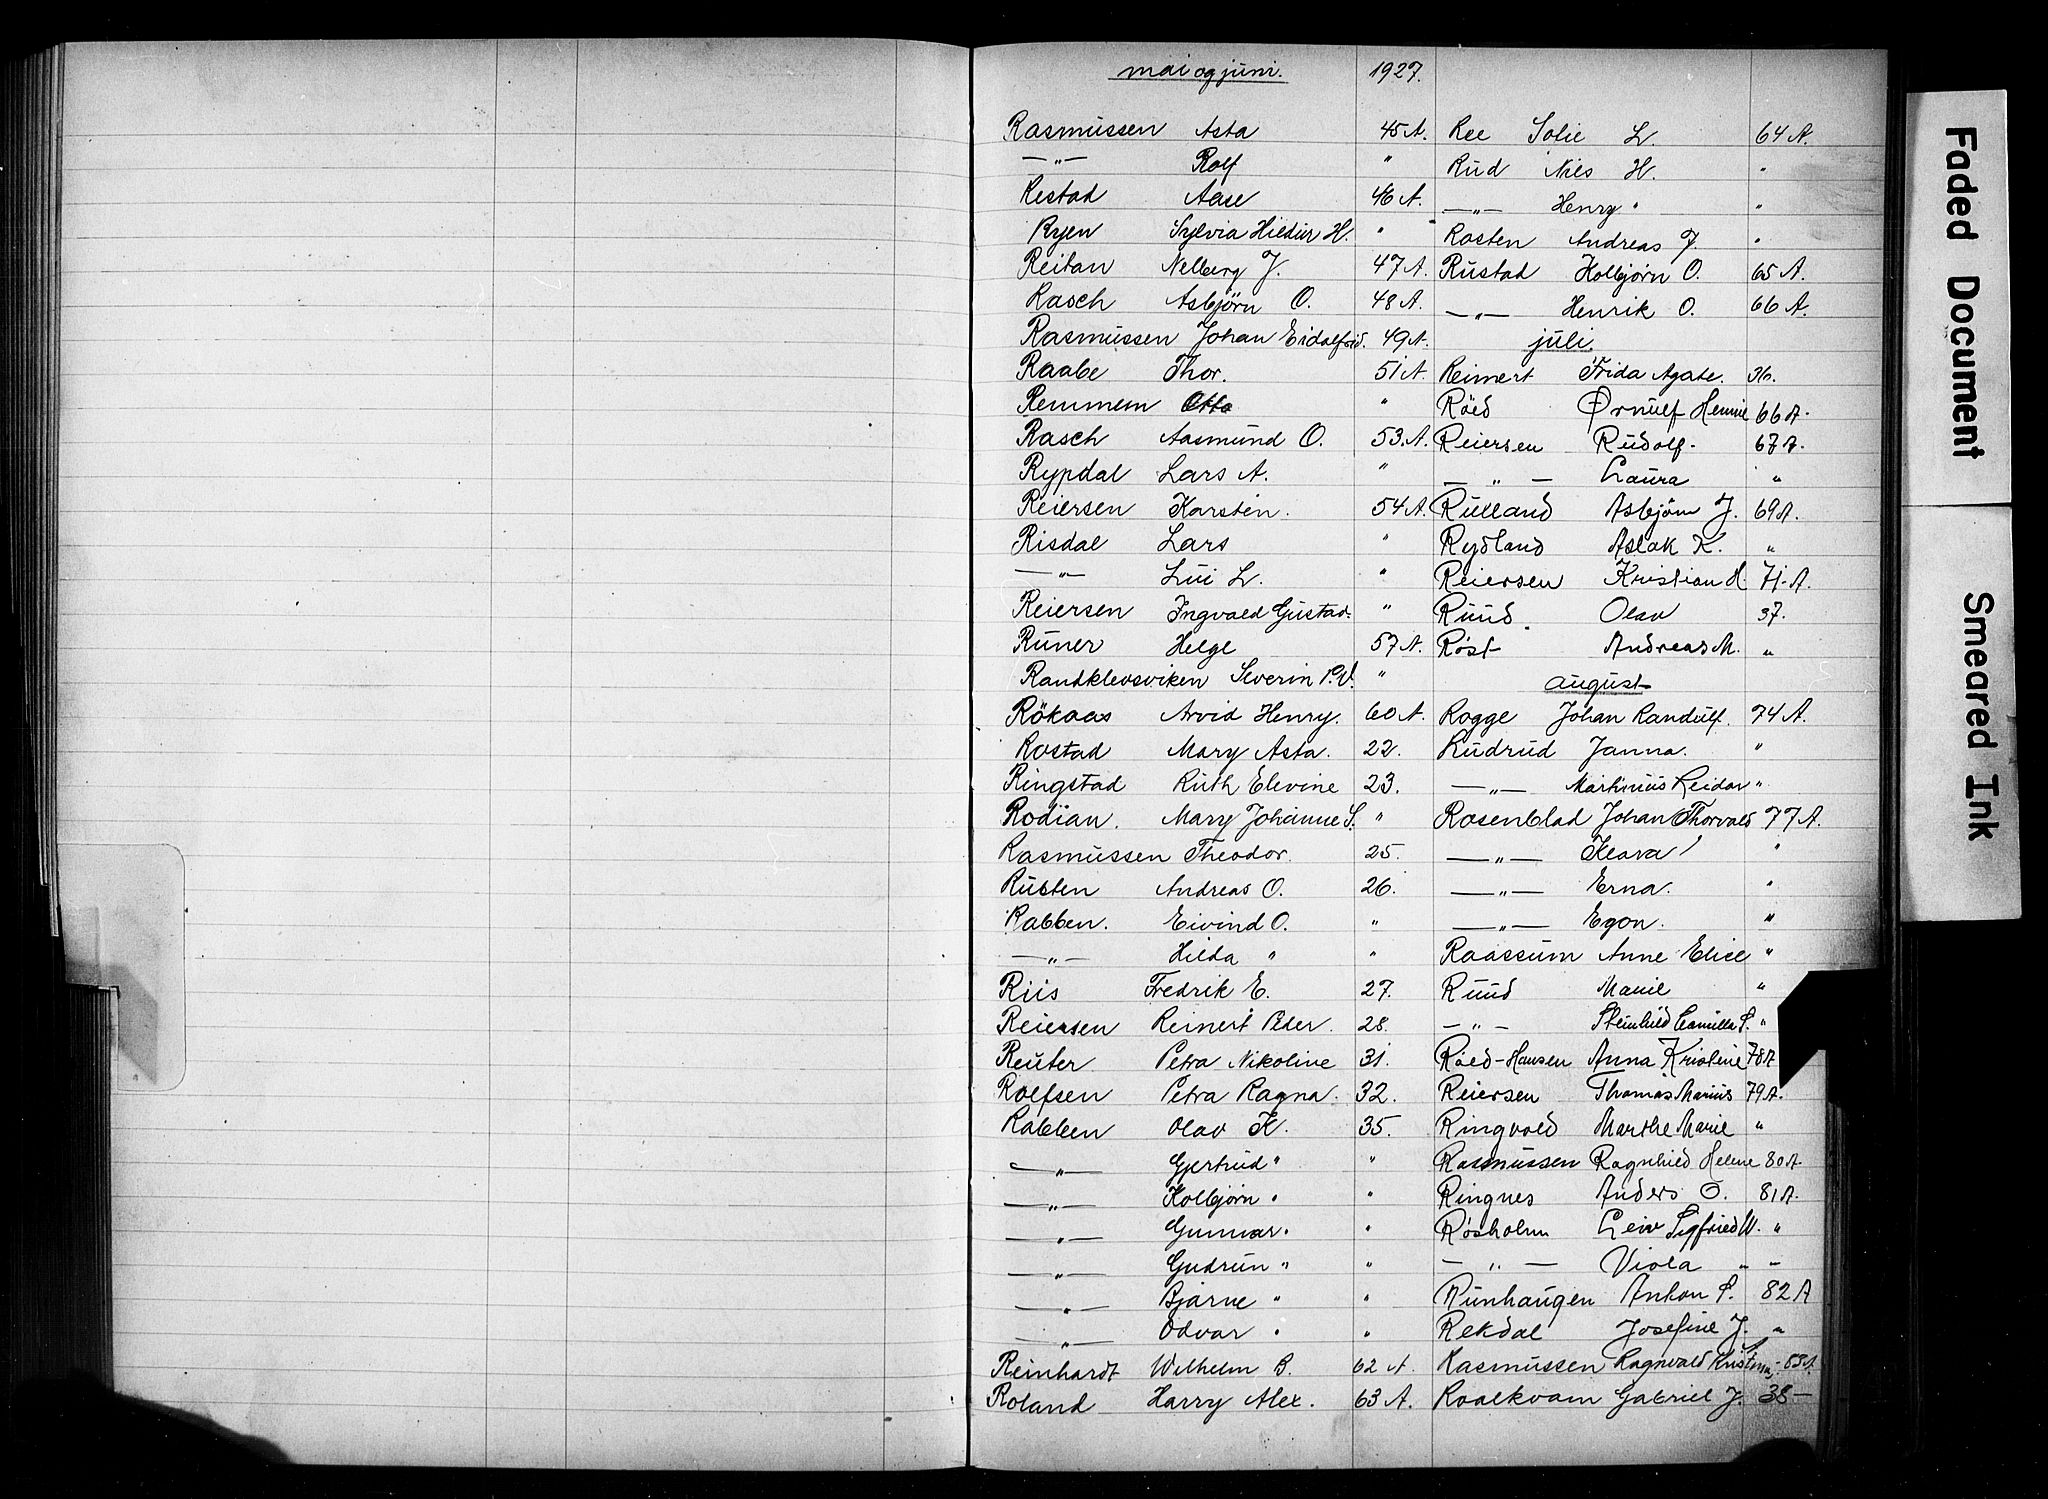 mai og juni. 1927.
Rasmussen Asta 45 A.
—"— Rolf "
Restad Aase 46 A.
Ryen Sylvia Hildur H. "
Reitan Nelberg J. 47 A.
Rasch Asbjörn O. 48 A.
Rasmussen Johan Eidalfrid. 49 A.
Raabe Thor. 51 A.
Remmem Otto "
Rasch Aasmund O. 53. A.
Rypdal Lars A. "
Reiersen Karsten. 54 A.
Risdal Lars "
—"— Lui L. "
Reiersen Ingvald Gustad. "
Runer Helge 57 A.
Randklevsviken Severin P.V. "
Rökaas Arvid Henry. 60 A.
Rostad Mary Asta. 22.
Ringstad Ruth Elevine 23.
Rodian. Mary Johanne S. "
Rasmussen Theodor. 25.
Rusten Andreas O. 26.
Rabben. Eivind O. "
—"— Hilda " "
Riis Fredrik E. 27.
Reiersen Reinert Peder. 28.
Reuter Petra Nikoline 31.
Rolfsen Petra Ragna. 32.
Rabben Olav K. 35.
—"— Gjertrud " "
—"— Kolbjörn " "
—"— Gunnar " "
—"— Gudrun " "
—"— Bjarne " "
—"— Odvar " "
Reinhardt Wilhelm B. 62 A.
Roland Harry Alex. 63 A.
Ree Sofie L. 64 A.
Rud Nils H. "
—"— Henry " "
Rosten Andreas J. "
Rustad Kolbjörn O. 65 A.
—"— Henrik O. 66 A.
juli
Reimert Frida Agate. 36.
Röed Ørnulf Hennie 66 A.
Reiersen Rudolf. 67 A.
— " — Laura "
Ruxland Asbjörn J. 69 A.
Rydland Aslak K. "
Reiersen Kristian H. 71. A.
Ruud. Olav 37.
Røst Andreas M. "
august
Rogge Johan Randulf. 74 A.
Rudrud Janna. "
—"— Martinius Reidar "
Rosenblad Johan Thorvald 77 A.
—"— Klara "
—"— Erna. "
—"— Egon. "
Raassum Anne Elise "
Ruud Marie "
— " — Steinhild Camilla S. "
Røed-Hansen Anna Kristine 78 A
Reiersen Thomas Marius 79 A.
Ringvold Marthe Marie "
Rasmussen Ragnhild Helene 80 A.
Ringnes Anders O. 81 A.
Røsholm Leiv Sigfried W. "
— " — Viola " "
Runhaugen Anton S. 82 A
Rekdal Josefine J. "
Rasmussen Ragnvald
Roalkvam Gabriel J. 38 —
Faded Document
Smeared Ink